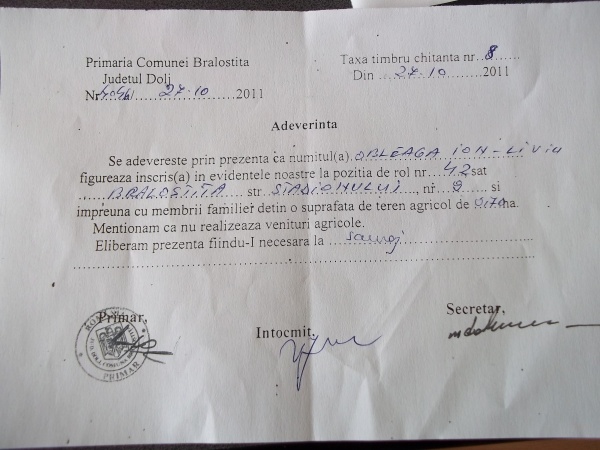 Primaria Comunei Bralostita
Judetul Dolj
Nr. 27.10 2011
Taxa timbru chitanta nr. 8
Din 27.10 2011
Adeverinta
Se adevereste prin prezenta ca numitul(a) OBLEAGA ION-LIVIU
figureaza inscris(a) in evidentele noastre la pozitia de rol nr. 42 sat
BRALOSTITA str. STADIONULUI, nr 9 si
impreuna cu membrii familiei detin o suprafata de teren agricol de ha.
Mentionam ca nu realizeaza venituri agricole.
Eliberam prezenta fiindu-I necesara la somaj
Primar,
Intocmit,
Secretar,
ROMANIA
PRIMAR